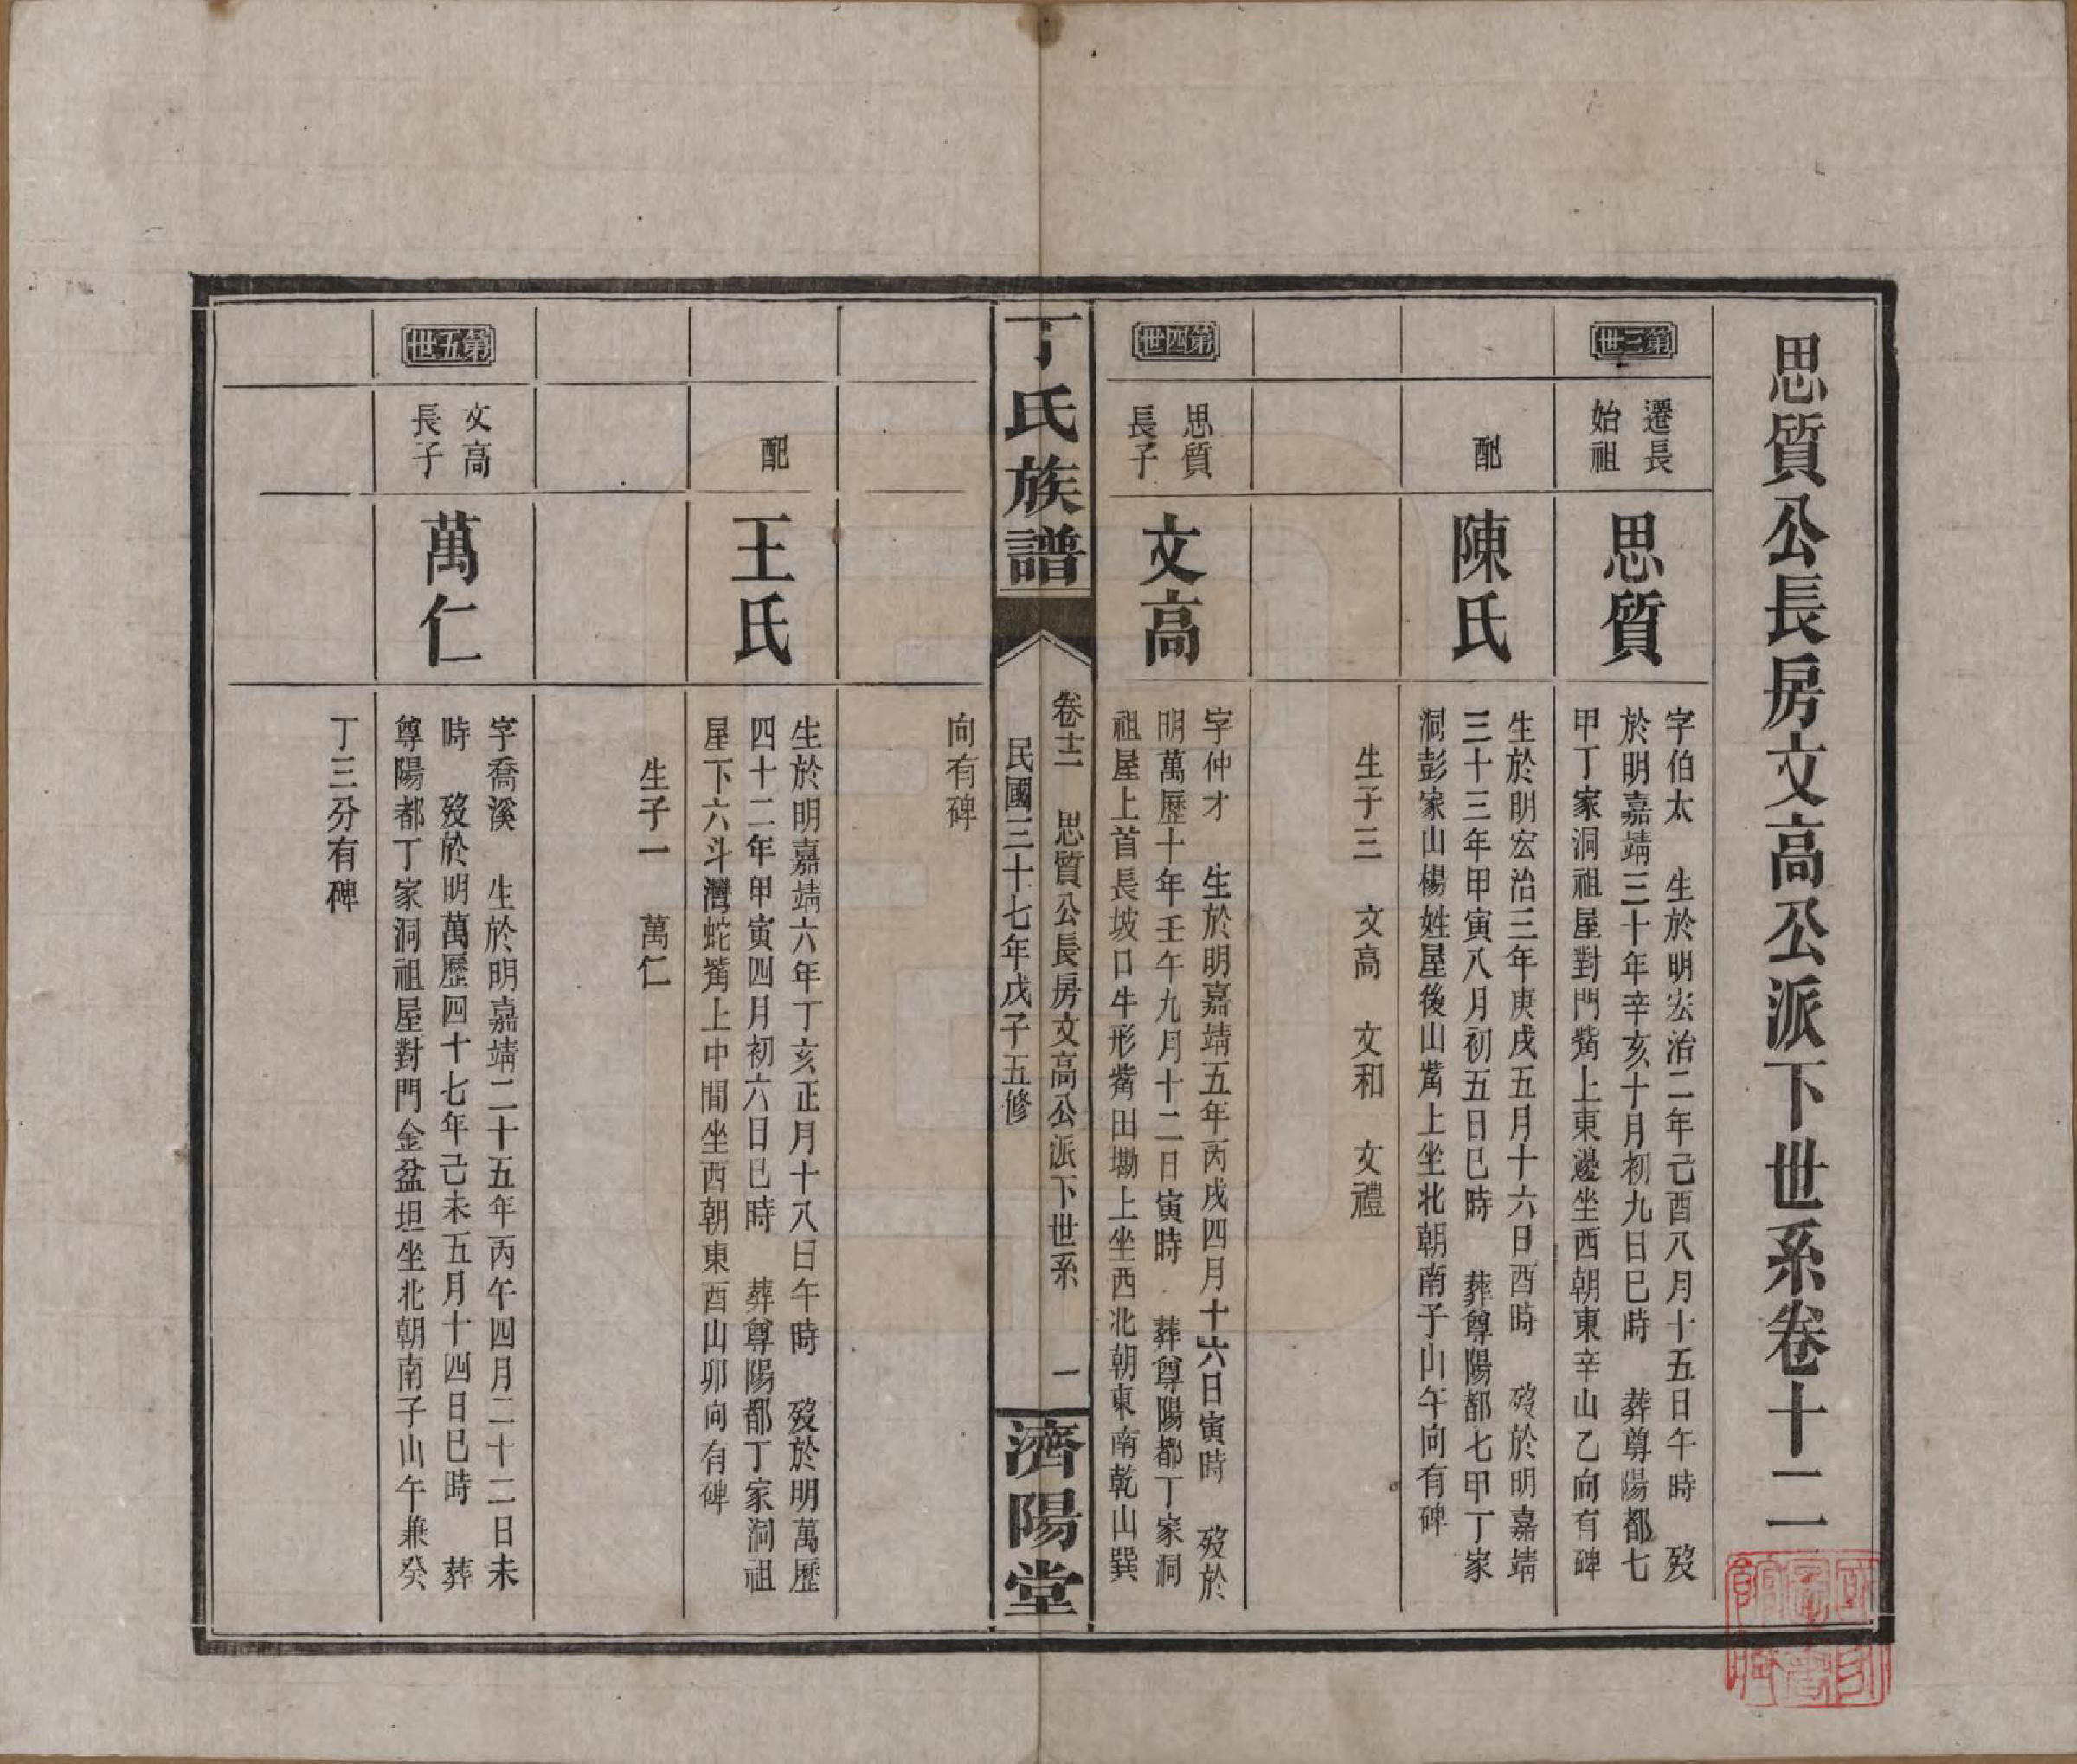 思質公長房文高公派下世系卷十二
第三世
遷長
始祖
思質
字伯太　生於明宏治二年己酉八月十五日午時　歿
於明嘉靖三十年辛亥十月初九日巳時　葬尊陽都七
甲丁家洞祖屋對門觜上東邊坐西朝東辛山乙向有碑
配
陳氏
生於明宏治三年庚戌五月十六日酉時　歿於明嘉靖
三十三年甲寅八月初五日巳時　葬尊陽都七甲丁家
洞彭家山楊姓屋後山觜上坐北朝南子山午向有碑
生子三　文高　文和　文禮
第四世
思質
長子
文高
字仲才　生於明嘉靖五年丙戌四月十六日寅時　歿於
明萬歷十年壬午九月十二日寅時　葬尊陽都丁家洞
祖屋上首長坡口牛形觜田墈上坐西北朝東南乾山巽
丁氏族譜
卷十二　思質公長房文高公派下世系　一
民國三十七年戊子五修
濟陽堂
向有碑
配
王氏
生於明嘉靖六年丁亥正月十八日午時　歿於明萬歷
四十二年甲寅四月初六日巳時　葬尊陽都丁家洞祖
屋下六斗灣蛇觜上中間坐西朝東酉山卯向有碑
生子一　萬仁
第五世
文高
長子
萬仁
字喬溪　生於明嘉靖二十五年丙午四月二十二日未
時　歿於明萬歷四十七年己未五月十四日巳時　葬
尊陽都丁家洞祖屋對門金盆坦坐北朝南子山午兼癸
丁三分有碑